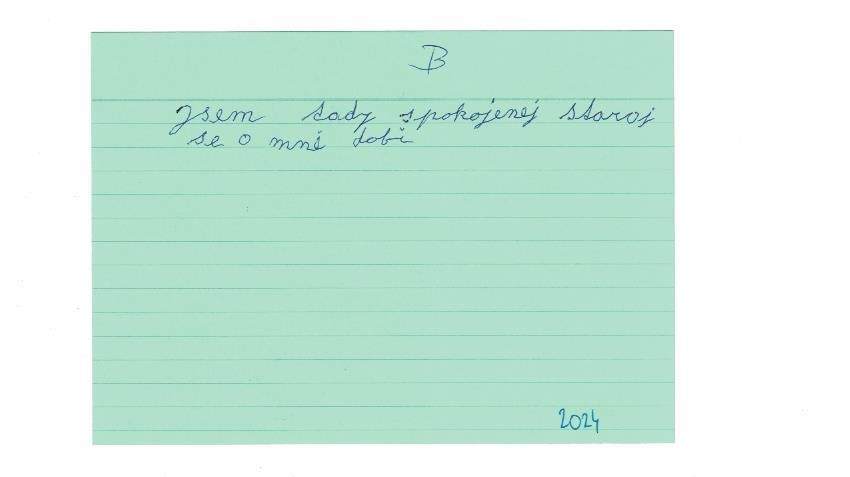 B
Jsem tady spokojenej staroj
se o mně dobi
2024